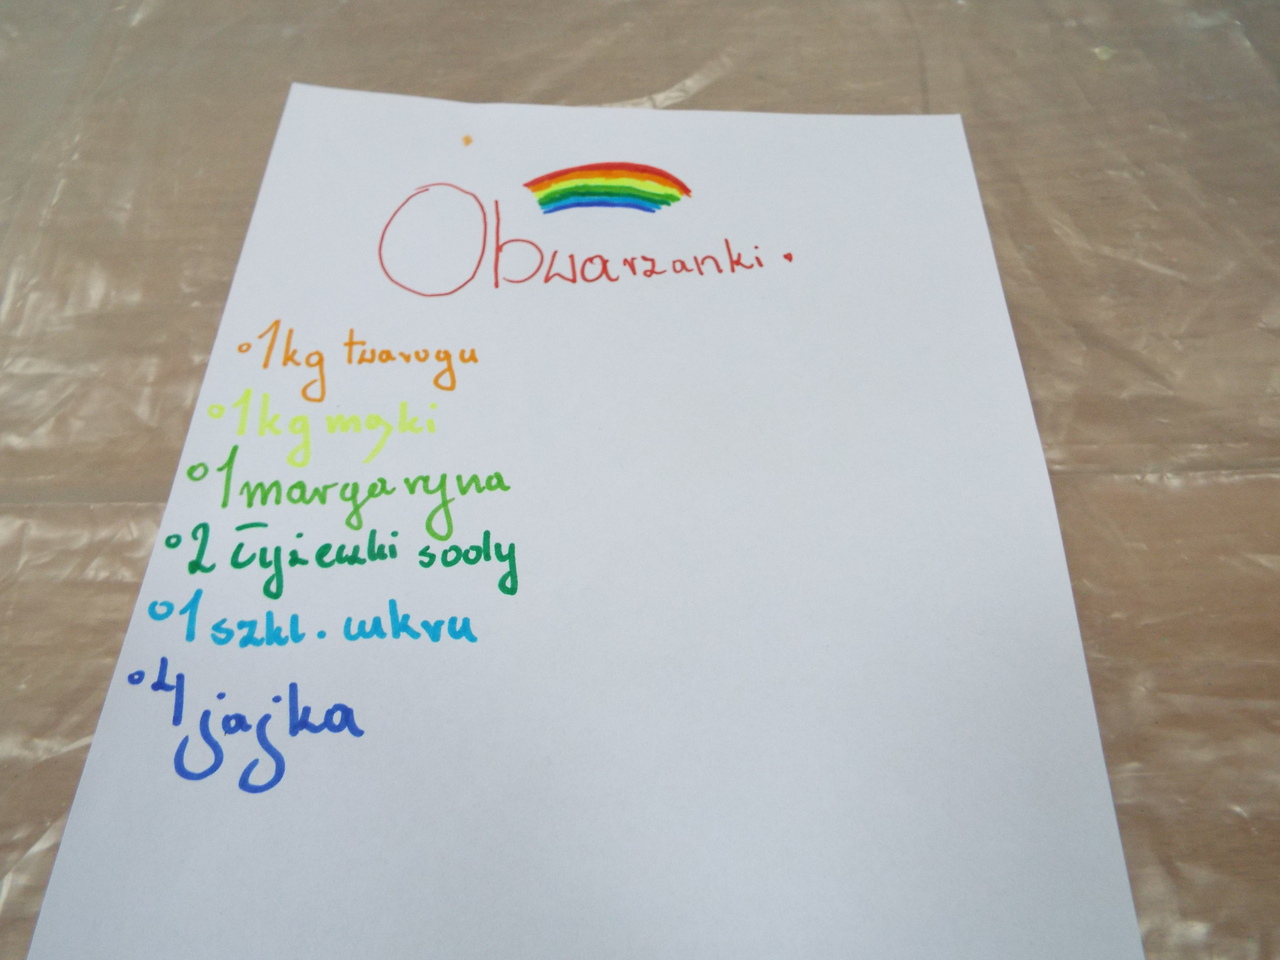 Obwarzanki.
° 1kg twarogu
° 1kg mąki
° 1 margaryna
° 2 łyżeczki sody
° 1 szkl. cukru
° 4 jajka